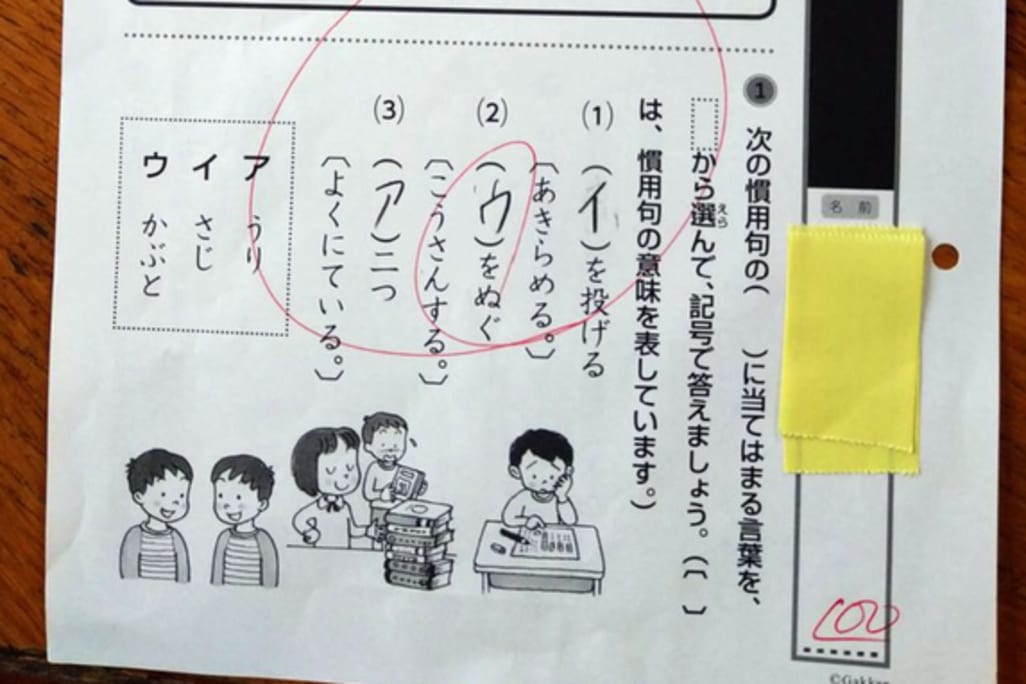 名前
100
1 次の慣用句の( )に当てはまる言葉を、
から選んで、記号で答えましょう。(〔 〕
えら
は、慣用句の意味を表しています。)
(1) (イ)を投げる
〔あきらめる。〕
(2) (ウ)をぬぐ
〔こうさんする。〕
(3) (ア)二つ
〔よくにている。〕
ア うり
イ さじ
ウ かぶと
©Gakken